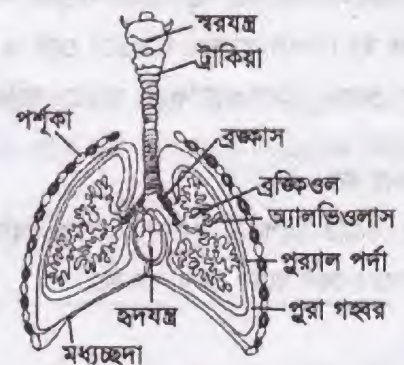 স্বরযন্ত্র
ট্রাকিয়া
পর্শুকা
ব্রঙ্কাস
ব্রঙ্কিওল
অ্যালভিওলাস
প্লুর‍্যাল পর্দা
প্লুরা গহ্বর
হৃদযন্ত্র
মধ্যচ্ছদা